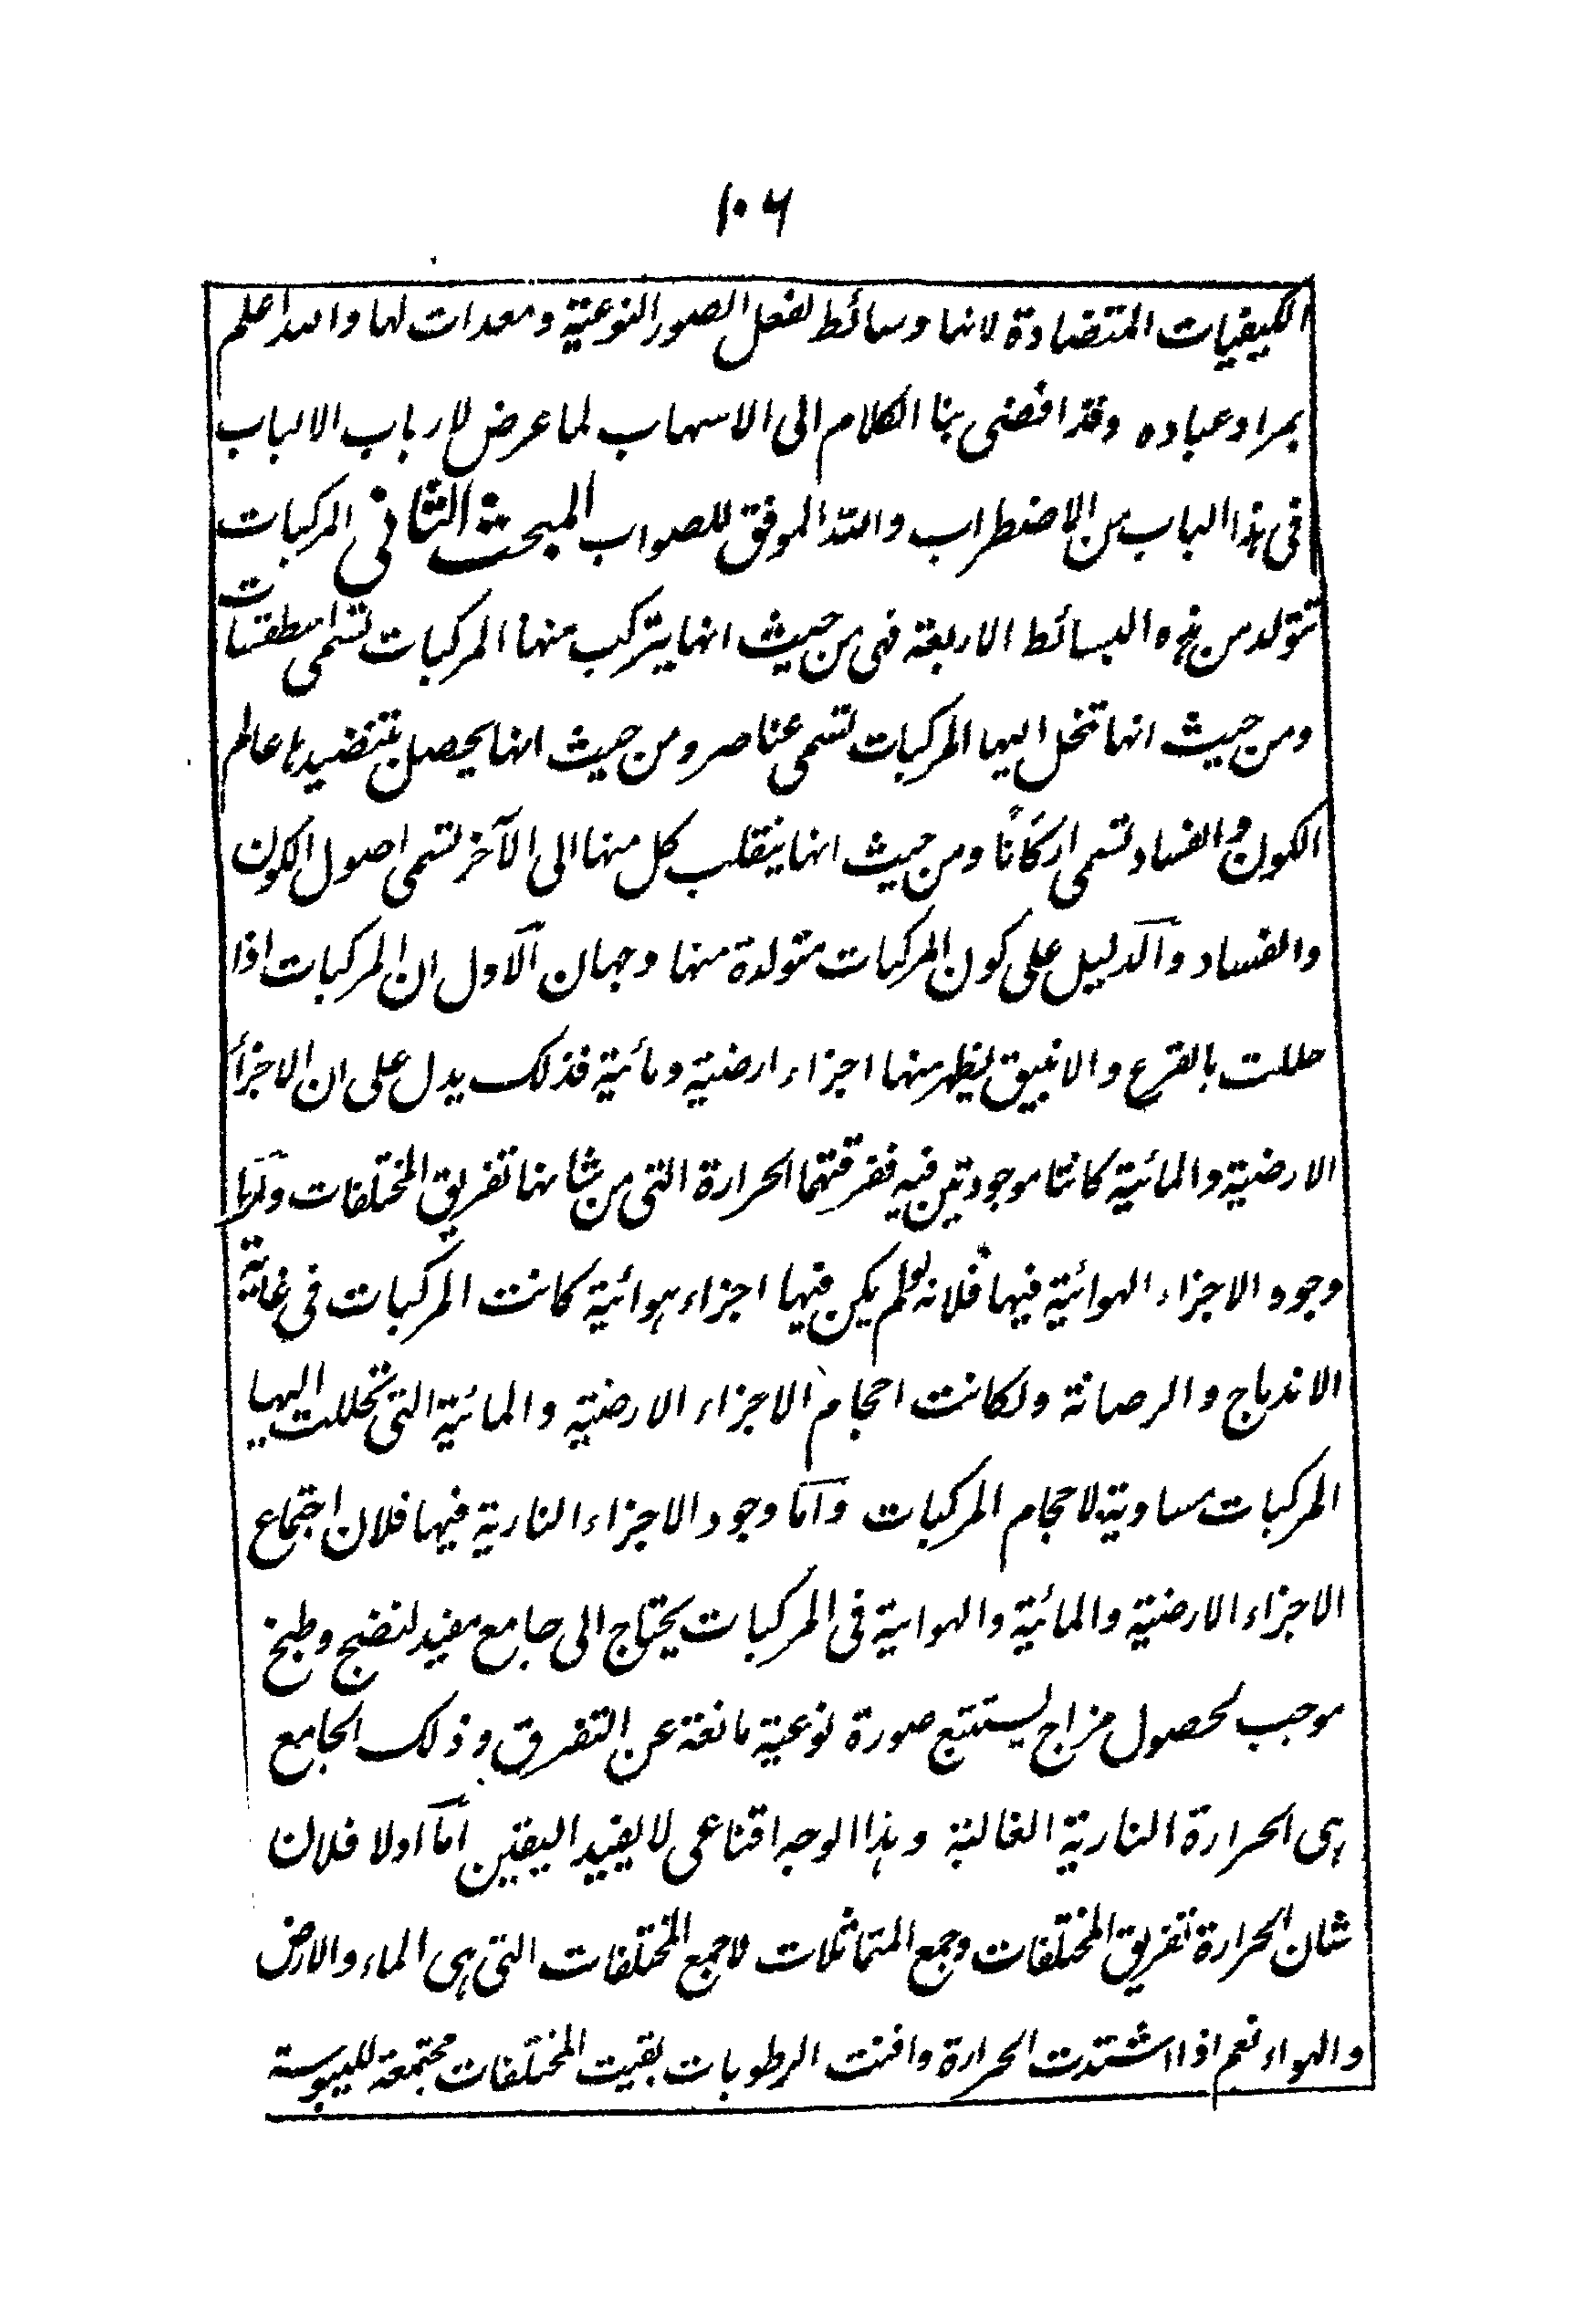 ١٠٦
الكيفيات المتضادة لانها وسائط لفعل الصور النوعية ومعدات لها والله اعلم
بمراد عباده وقد افضى بنا الكلام الى الاسهاب لما عرض لارباب الالباب
فى هذا الباب من الاضطراب والله الموفق للصواب المبحث الثانى المركبات
تتولد من هذه البسائط الاربعة فهى من حيث انها يتركب منها المركبات تسمى اسطقسات
ومن حيث انها تنحل اليها المركبات تسمى عناصر ومن حيث انها يحصل بتنضيدها عالم
الكون والفساد تسمى اركانًا ومن حيث انها ينقلب كل منها الى الآخر تسمى اصول الكون
والفساد والدليل على كون المركبات متولدة منها وجهان الاول ان المركبات اذا
حللت بالقرع والانبيق يظهر منها اجزاء ارضية ومائية فذلك يدل على ان الاجزاء
الارضية والمائية كانتا موجودتين فيه ففرقتهما الحرارة التى من شانها تفريق المختلفات واما
وجود الاجزاء الهوائية فيها فلانه لو لم يكن فيها اجزاء هوائية كانت المركبات فى غاية
الاندماج والرصانة ولكانت احجام الاجزاء الارضية والمائية التى تحللت اليها
المركبات مساوية لاحجام المركبات واما وجود الاجزاء النارية فيها فلان اجتماع
الاجزاء الارضية والمائية والهوايية فى المركبات يحتاج الى جامع مفيد لنضج وطبخ
موجب لحصول مزاج يستتبع صورة نوعية مانعة عن التفرق وذلك الجامع
هى الحرارة النارية الغالبة وهذا الوجه اقناعى لا يفيد اليقين اما اولا فلان
شان الحرارة تفريق المختلفات وجمع المتماثلات لا جمع المختلفات التى هى الماء والارض
والهواء نعم اذا اشتدت الحرارة وافنت الرطوبات بقيت المختلفات مجتمعة لليبوسة